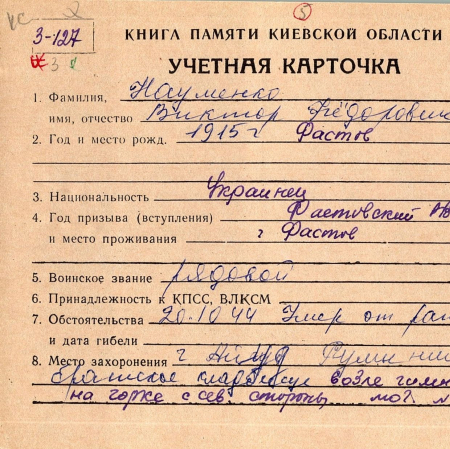 3-127
КНИГА ПАМЯТИ КИЕВСКОЙ ОБЛАСТИ
УЧЕТНАЯ КАРТОЧКА
1. Фамилия, Науменко
имя, отчество Виктор Фёдорович
2. Год и место рожд. 1915 г Фастов
3. Национальность Украинец
4. Год призыва (вступления) Фастовский
и место проживания г Фастов
5. Воинское звание рядовой
6. Принадлежность к КПСС, ВЛКСМ
7. Обстоятельства 20.10.44 Умер от ран
и дата гибели
8. Место захоронения г Румыния
братское кладбище возле
на горке с сев. стороны, мог.